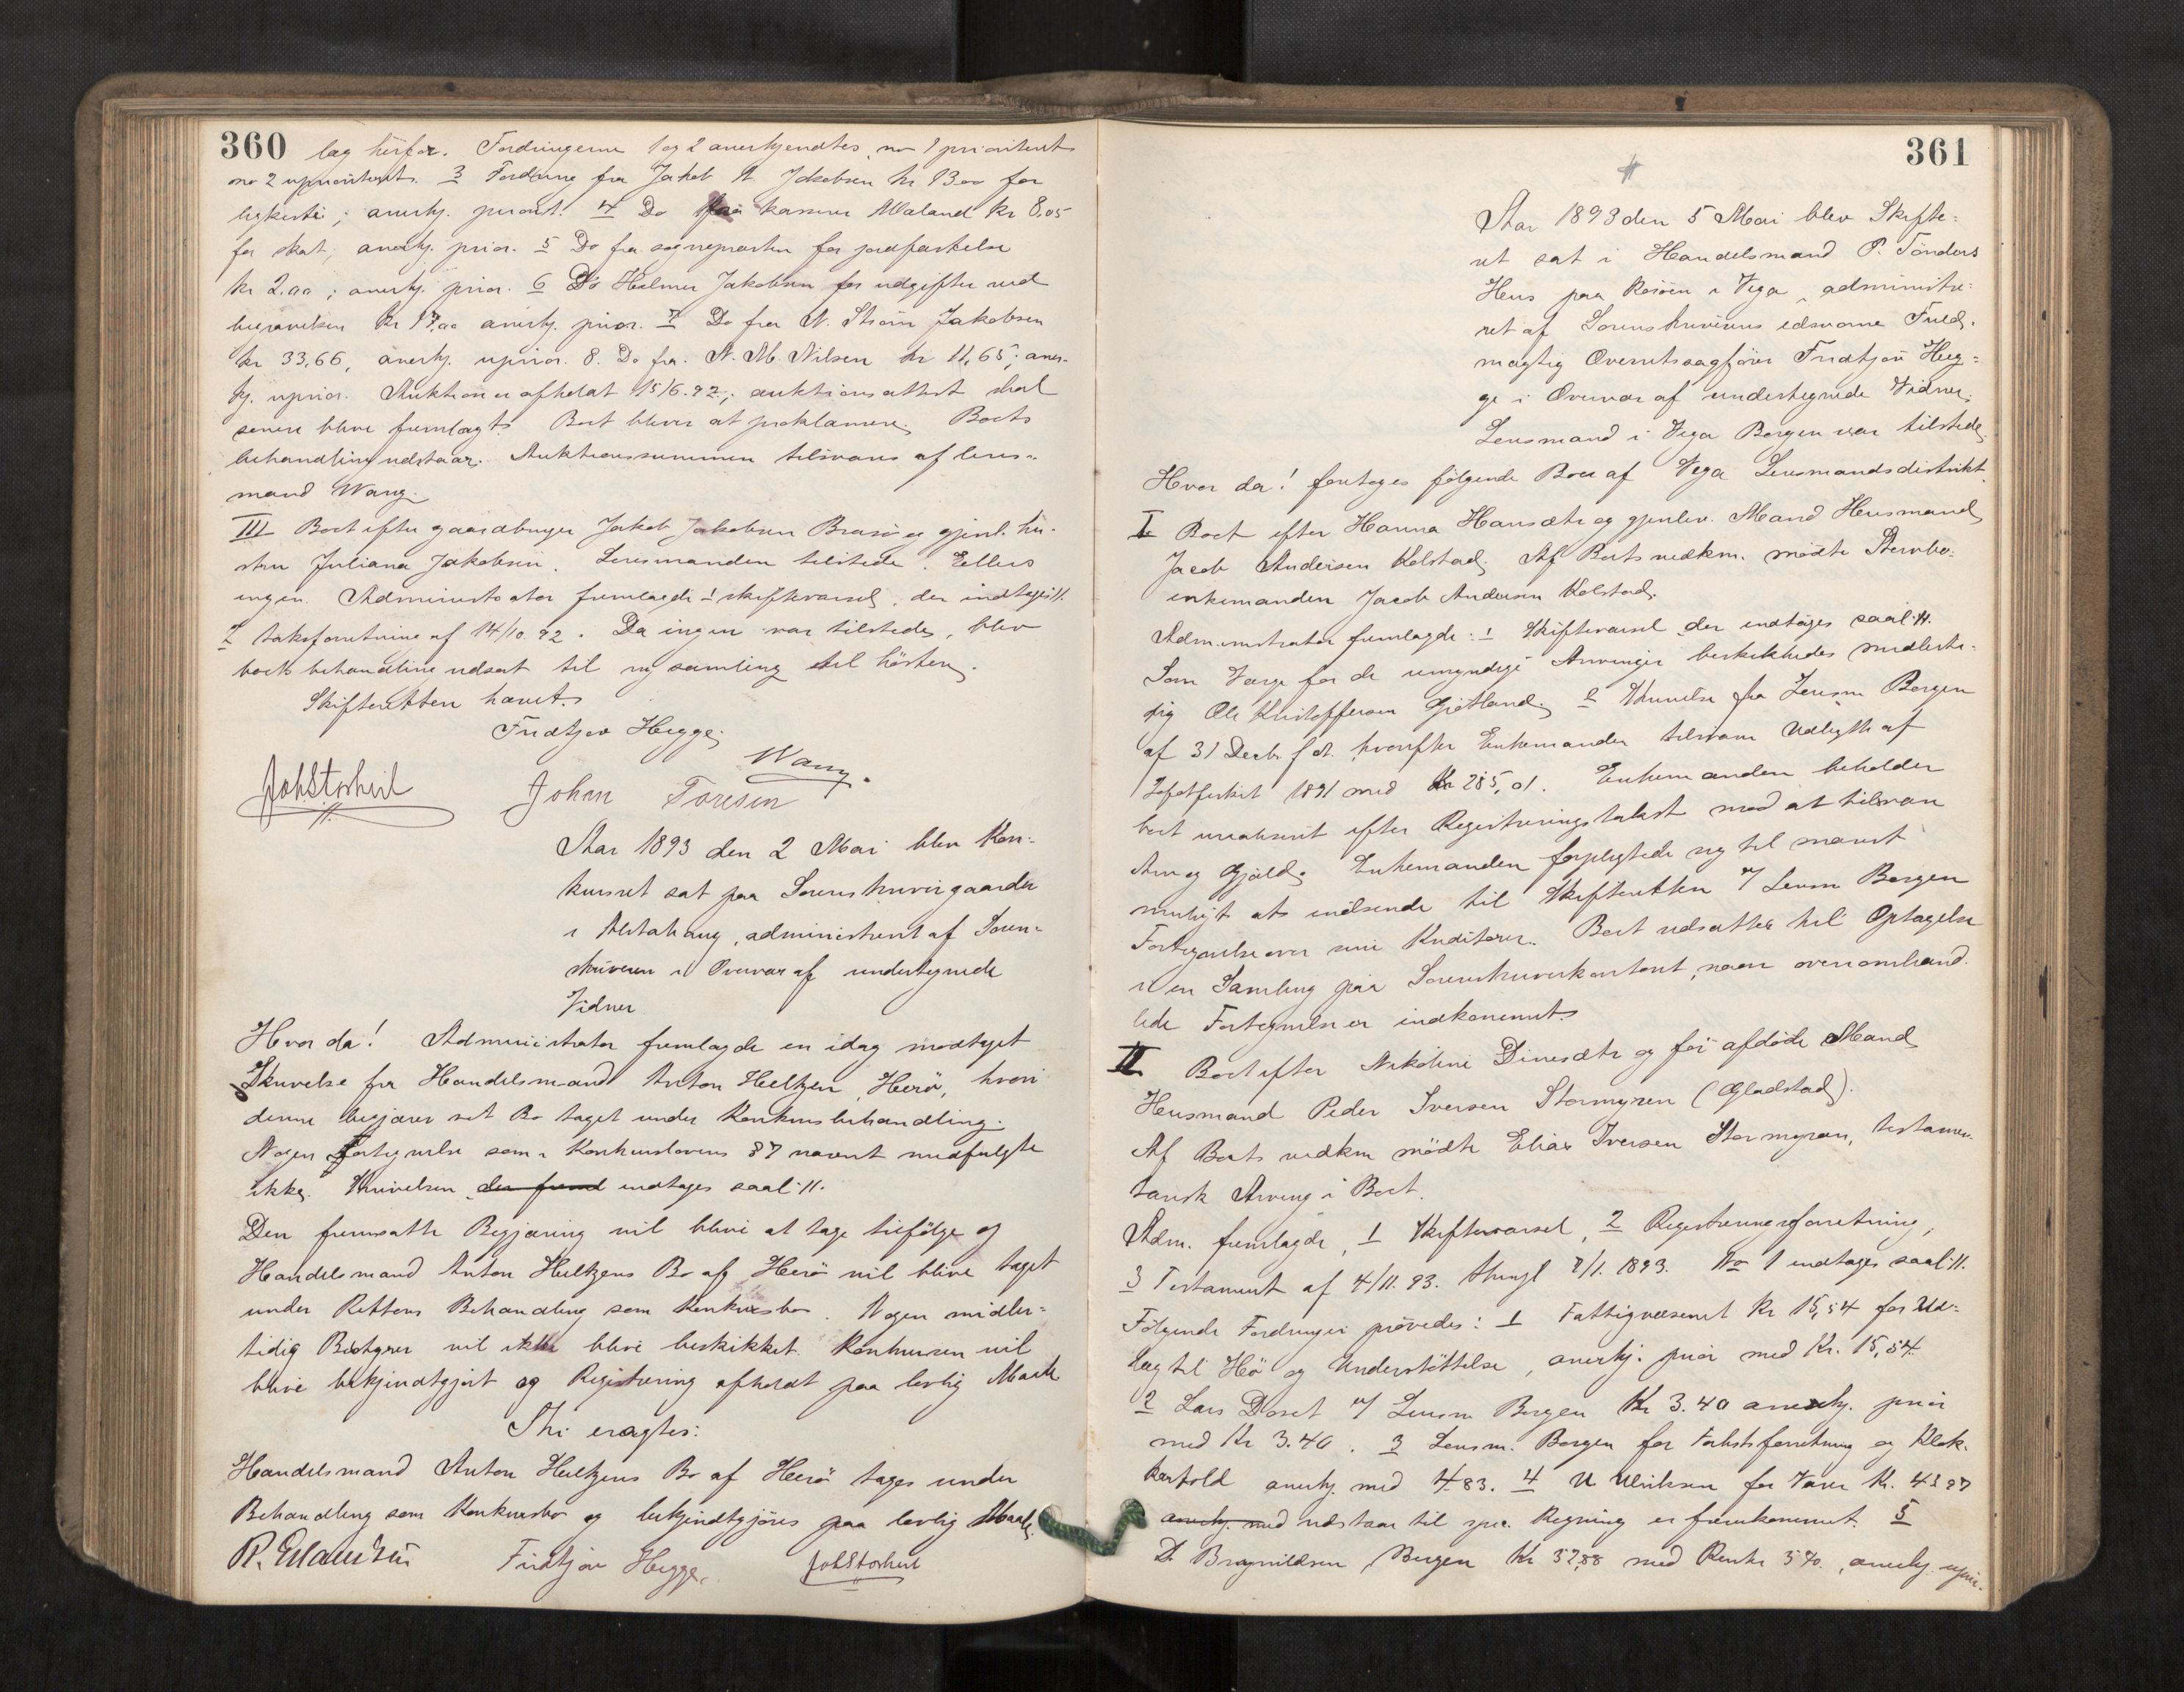 360
lag herfor. Fordringerne 1 og 2 anerkjendtes, no 1 prioriteret
no 2 uprioriteret. 3 Fordring fra Jakob A Jakobsen kr 13.00 for
ligkiste; anerkj. priorit. 4 Do fra kasserer Waland kr 8,05
for skat; anerkj. prior. 5 Do fra sognepresten for jordpaakastelse
kr 2.00; anerkj. prior. 6 Do Helmer Jakobsen for udgifter ved
begravelsen kr 17,00 anerkj. prior. 7 Do fra N. Strøm Jakobsen
kr 33,66, anerkj. uprior. 8. Do fra N. M. Nilsen kr 11,65; aner-
kj. uprior. Auktion er afholdt 15/6.92; auktionsattest skal
senere blive fremlagt. Boet bliver at proklamere. Boets
behandling udstaar. Auktionssummen tilsvares af lens-
mand Wang.
III Boet efter gaardbruger Jakob Jakobsen Brasø og gjenl. hu-
stru Juliana Jakobsen. Lensmanden tilstede. Ellers
ingen. Administrator fremlagde 1 skiftevarsel, der indtages //.
2 takstforretning af 14/10.92. Da ingen var tilstede, blev
boets behandling udsat til ny samling til høsten.
Skifteretten hævet.
Fridtjov Hegge.
Wang.
JohStorheil
Johan Toresen
Aar 1893 den 2 Mai blev Kon-
kursret sat paa Sorenskrivergaarden
i Alstahaug, administreret af Soren-
skriveren i Overvær af undertegnede
Vidner
Hvor da! Administrator fremlagde en idag modtaget
Skrivelse fra Handelsmand Anton Heltzen, Herø, hvori
denne begjærer sit Bo taget under Konkursbehandling.
Nogen Fortegnelse som i Konkurslovens § 7 nævnt medfulgte
ikke. Skrivelsen der frem indtages saal. //.
Den fremsatte Begjæring vil blive at tage tilfølge og
Handelsmand Anton Heltzens Bo af Herø vil blive taget
under Rettens Behandling som Konkursbo. Nogen midler-
tidig Bostyrer vil ikke blive beskikket. Konkursen vil
blive bekjendtgjort og Registrering afholdt paa lovlig Maade
Thi eragtes:
Handelsmand Anton Heltzens Bo af Herø tages under
Behandling som Konkursbo og bekjendtgjøres paa lovlig Maade.
Fridtjov Hegge. JohStorheil
361
Aar 1893 den 5 Mai blev Skifte-
ret sat i Handelsmand P. Tönders
Hus paa Rørøen i Vega, administre-
ret af Sorenskriverens edsvorne Fuld-
mægtig Overretssagfører Fridtjov Heg-
ge i Overvær af undertegnede Vidner.
Lensmand i Vega Borgen var tilstede.
Hvor da! foretoges følgende Boer af Vega Lensmandsdistrikt.
I Boet efter Hanna Hansdtr og gjenlev. Mand Husmand
Jacob Andersen Kolstad. Af Boets vedkm. mødte Stervbo-
enkemanden Jacob Andersen Kolstad.
Administrator fremlagde: 1 Skiftevarsel der indtages saal. //.
Som Værge for de umyndige Arvinger beskikkedes midlerti-
dig Ole Kristoffersen Grötland. 2 Skrivelse fra Lensm Borgen
af 31 Decbr f. A. hvorefter Enkemanden tilsvarer Udbytte af
Lofotfiskeri 1891 med Kr 285,01. Enkemanden beholder
boet uvurderet efter Registreringstakst mod at tilsvare
Arv og Gjæld. Enkemanden forpligtede sig til snarest
muligt at indsende til Skifteretten v/ Lensm Borgen
Fortegnelse over sine Kreditorer. Boet udsattes til Optagelse
i en Samling paa Sorenskriverkontoret, naar ovenomhand-
lede Fortegnelse er indkommet.
II Boet efter Nikoline Dinesdtr og før afdøde Mand
Husmand Peder Iversen Stormyren (Gladstad).
Af Boets vedkm mødte Elias Iversen Stormyren, testamen-
tarisk Arving i Boet.
Adm. fremlagde, 1 Skiftevarsel, 2 Registreringsforretning,
3 Testament af 4/11.93. thingl 7/1. 1893. No 1 indtages saal. //.
Følgende Fordringer prøvedes: 1 Fattigvæsenet Kr 15,54 for Ud-
læg til Hø og Understøttelse, anerkj. prior med Kr. 15,54.
2 Lars Doset v/ Lensm Borgen Kr 3.40 anerkj. prior
med Kr 3.40. 3 Lensm. Borgen for Takstforretning og Klok-
kerhold anerkj. med 4.83. 4 U Ulriksen for Varer Kr. 43 97
anerkj. med udstaar til spec. Regning er fremkommet. 5
D. Brognildsen Bergen Kr 52.88 med Renter 5 %, anerkj. uprior.